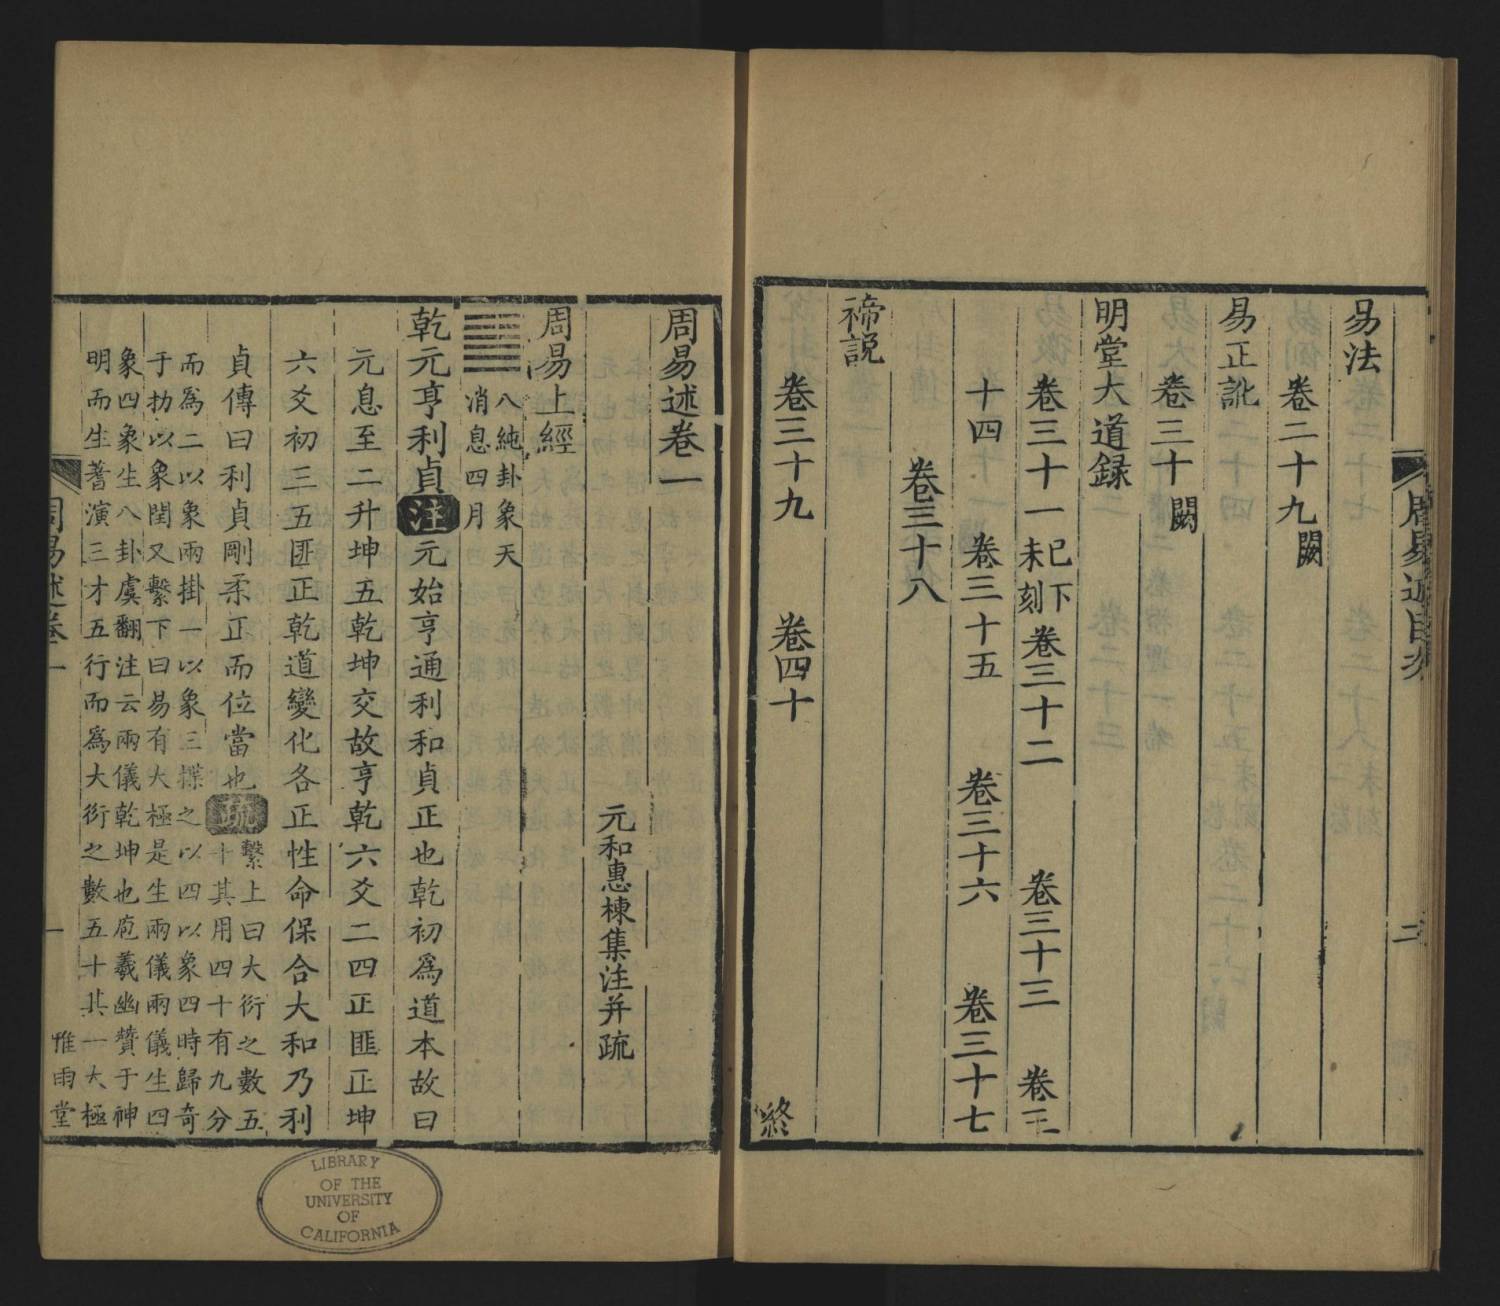 易法
卷二十九 闕
易正訛
卷三十 闕
明堂大道録
卷三十一 已下未刻 卷三十二 卷三十三 卷三
十四 卷三十五 卷三十六 卷三十七
卷三十八
禘説
卷三十九 卷四十
終
周易述目次
二
周易述卷一
元和惠棟集注并疏
周易上經
八純卦象天
消息四月
乾元亨利貞 注 元始亨通利和貞正也乾初爲道本故曰
元息至二升坤五乾坤交故亨乾六爻二四正匪正坤
六爻初三五匪正乾道變化各正性命保合大和乃利
貞傳曰利貞剛柔正而位當也 疏 繫上曰大衍之數五
十其用四十有九分
而爲二以象兩掛一以象三揲之以四以象四時歸奇
于扐以象閏又繫下曰易有大極是生兩儀兩儀生四
象四象生八卦虞翻注云兩儀乾坤也庖羲幽贊于神
明而生蓍演三才五行而爲大衍之數五十其一大極
周易述卷一
一
雅雨堂
LIBRARY
OF THE
UNIVERSITY
OF
CALIFORNIA